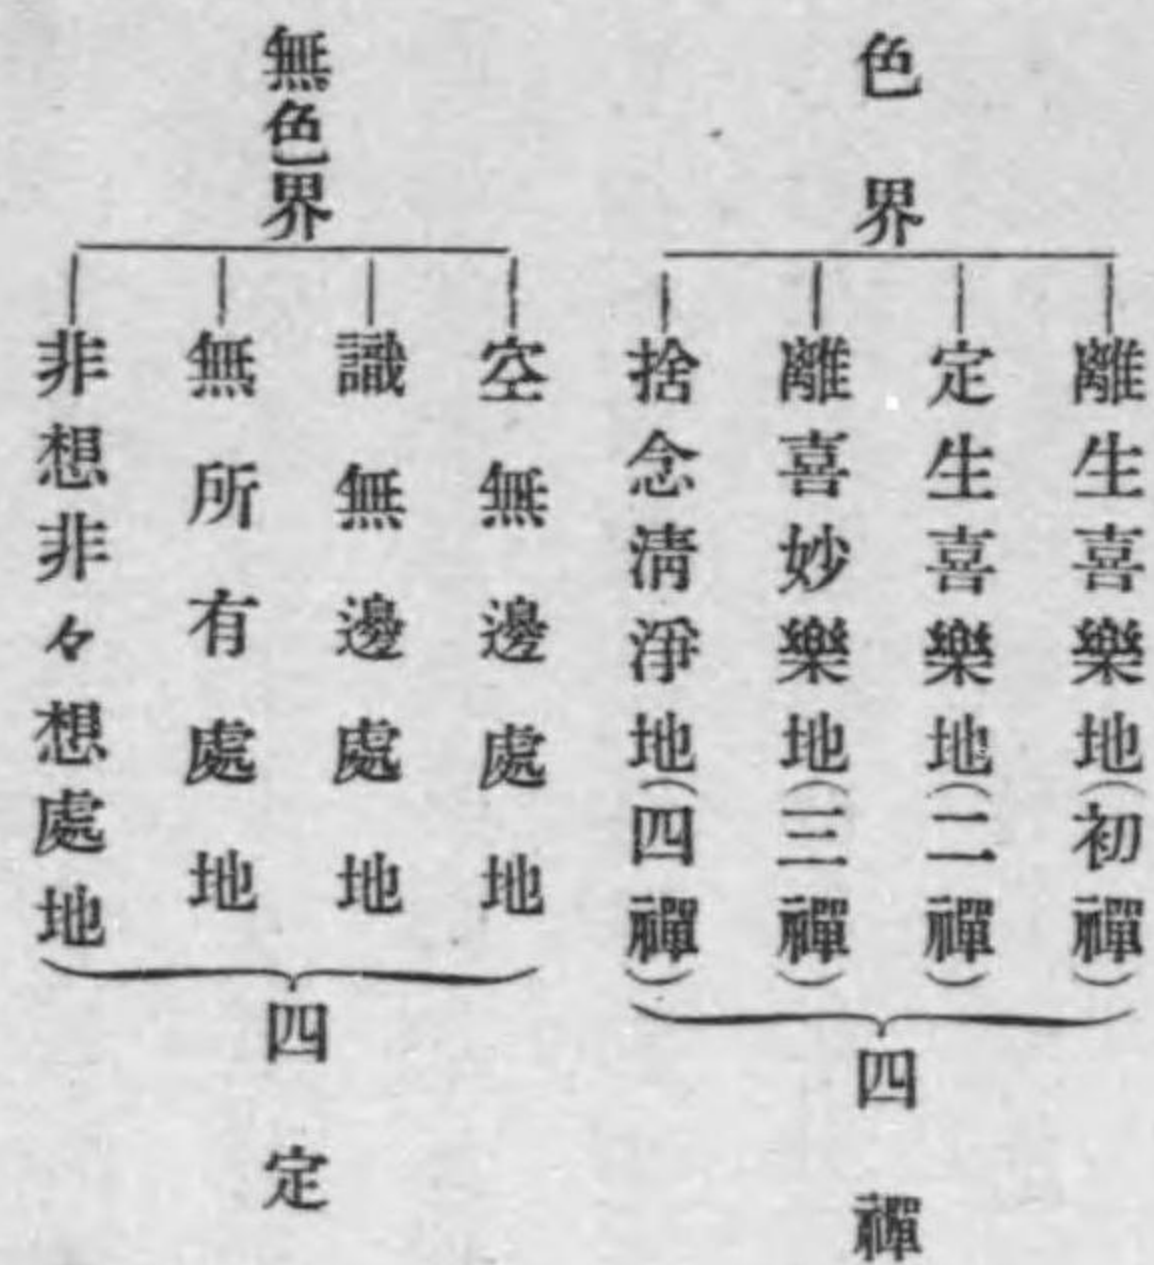 色界
離生喜樂地(初禪)
定生喜樂地(二禪)
離喜妙樂地(三禪)
捨念淸淨地(四禪)
四禪
無色界
空無邊處地
識無邊處地
無所有處地
非想非々想處地
四定